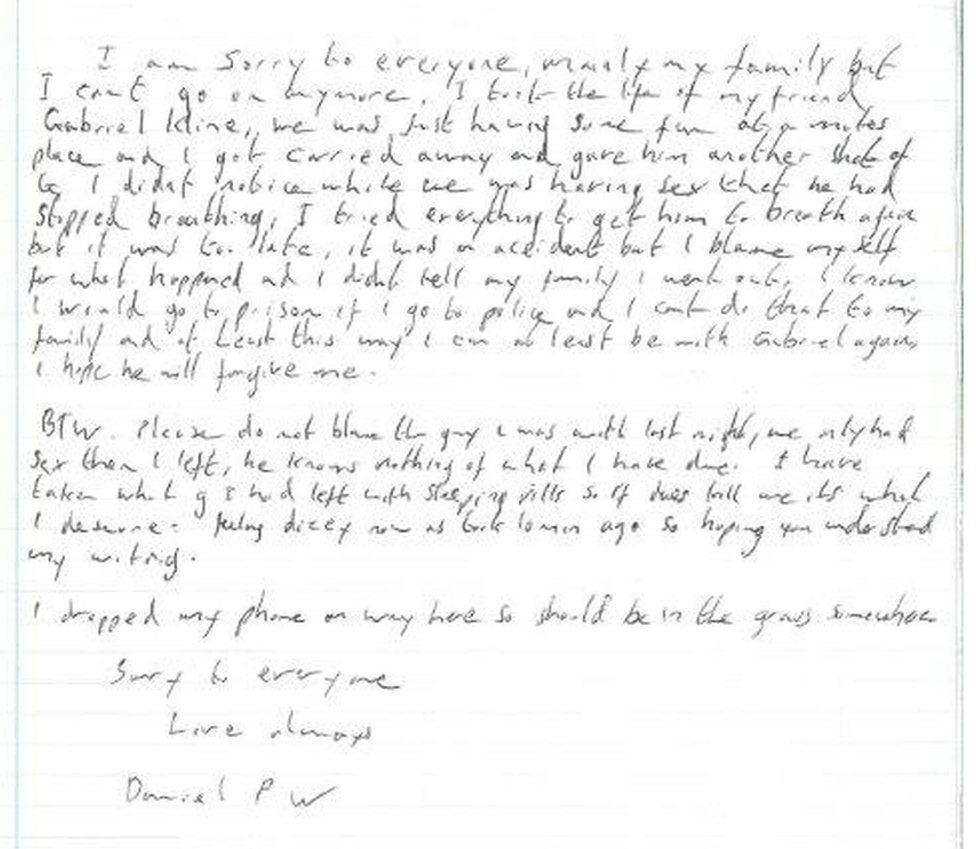 I am sorry to everyone, mainly my family but
I cant go on anymore. I took the life of my friend
Gabriel Kline, we was just having some fun at a mates
place and I got carried away and gave him another shot of
G, I didnt notice while we was having sex that he had
stopped breathing, I tried everything to get him to breath again
but it was too late, it was an accident but I blame myself
for what happened and I didnt tell my family I went out. I know
I would go to prison if I go to police and I cant do that to my
family and at least this way I can at least be with Gabriel again,
I hope he will forgive me.
BTW. Please do not blame the guy I was with last night, we only had
sex then I left, he knows nothing of what I have done. I have
taken what g I had left with sleeping pills so if it does kill me its what
I deserve. feeling dizzy now as took 10 min ago so hoping you understand
my writing.
I dropped my phone on way here so should be in the grass somewhere
Sorry to everyone
Love always
Daniel P W